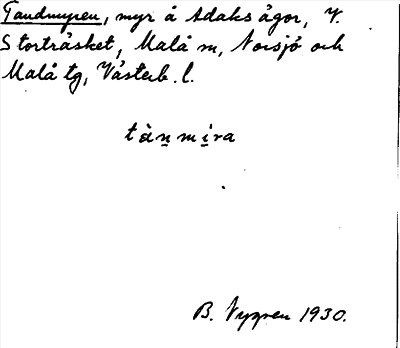 Tandmyren, myr å Adaks ägor, V.
Storträsket, Malå sn, Norsjö och
Malå tg, Västerb. l.
tàn̲mi̲ra
B. Nygren 1930.